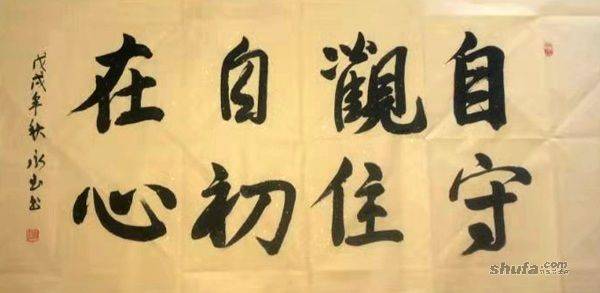 自觀自在
守住初心
戊戌年秋永
shufa.com